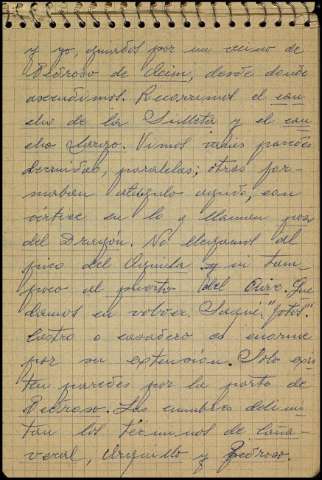 y yo, guiados por un vecino de
Pedroso de Acim, desde donde
ascendimos. Recorrimos el can
cho de la Silleta y el can
cho Largo. Vimos varias paredes
derruidas, paralelas; otras for
maban ángulo agudo, con
vértice en lo q llaman
del Dragón. No llegamos al
pico del Aguila y ni tam
poco al puerto del Aire. Que
damos en volver. Saqué "fotos".
Castro o cazadero es enorme
por su extensión. Solo exis
ten paredes por la parte de
Pedroso. Las cumbres delimi
tan los términos de Caña
veral, Arquillo y Pedroso.